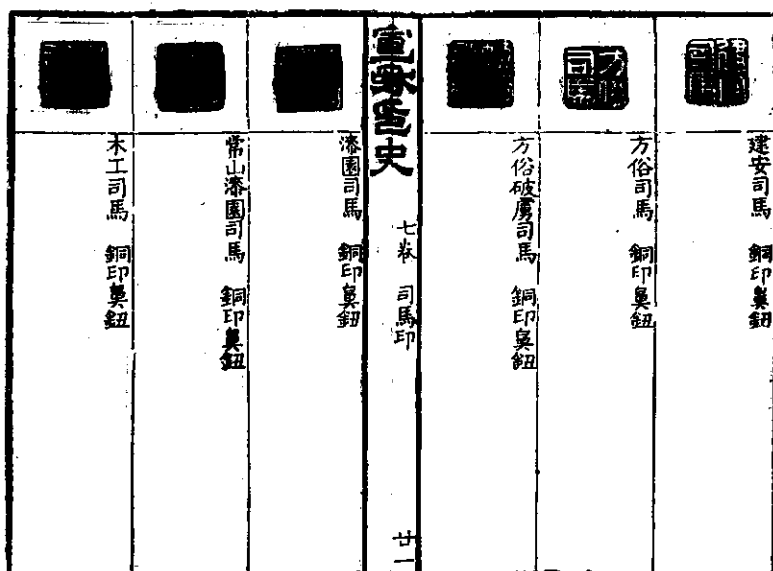 建安司馬
建安司馬　銅印鼻鈕
方俗司馬
方俗司馬　銅印鼻鈕
方俗破虜司馬　銅印鼻鈕
史　七卷　司馬印　廿一
漆園司馬　銅印鼻鈕
常山漆園司馬　銅印鼻鈕
木工司馬　銅印鼻鈕